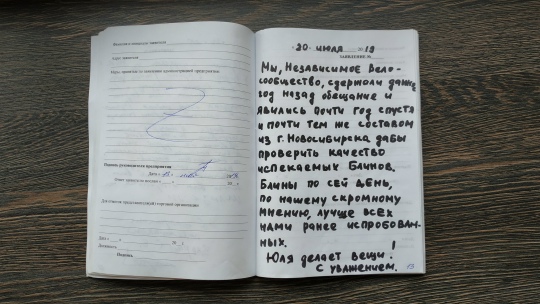 Фамилия и инициалы заявителя
Адрес заявителя
Меры, принятые по заявлению администрацией предприятия
Подпись руководителя предприятия
Дата «
Для отметок предпринимателей торговой организации
Дата «
Должность
Подпись
20 июля 2018
ЗАЯВЛЕНИЕ №
Мы, Независимое Вело-
сообщество, сдержали данное
год назад обещание и
явились почти год спустя
и почти тем же составом
из г. Новосибирска дабы
проверить качество
испекаемых Блинов.
Блины по сей день,
по нашему скромному
мнению, лучше всех
нами ранее испробован-
ных.
Юля делает вещи!
С уважением.
13